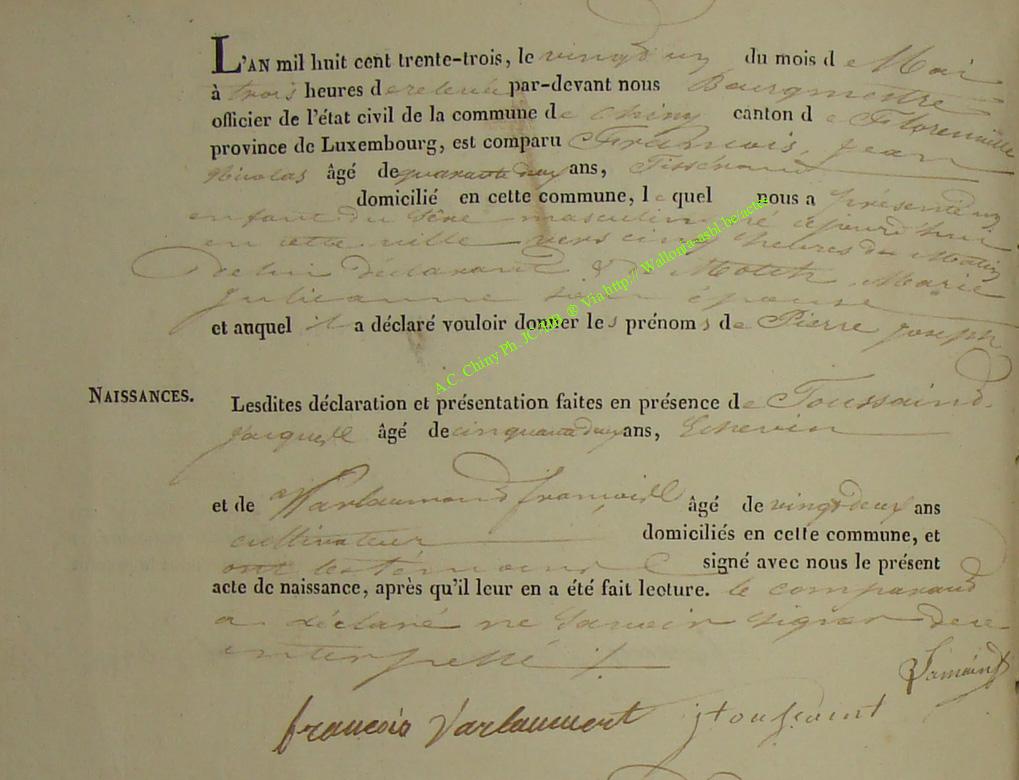 L'AN mil huit cent trente-trois, le vingt un du mois de Mai
à trois heures de relevée par-devant nous Bourgmestre
officier de l'état civil de la commune de Chiny canton de Florenville
province de Luxembourg, est comparu François, Jean
Nicolas âgé de quarante deux ans, Tisserand
domicilié en cette commune, lequel nous a présenté un
enfant du sèxe masculin né aujourd'hui
en cette ville vers cinq heures du Matin
de lui déclarant & de Marie
Julienne son épouse
et auquel il a déclaré vouloir donner les prénoms de Pierre Joseph
NAISSANCES.
Lesdites déclaration et présentation faites en présence de Toussaind
Jacques âgé de cinquante deux ans, Echevin
et de Warlaumond françois âgé de vingt deux ans
cultivateur domiciliés en cette commune, et
ont les témoins signé avec nous le présent
acte de naissance, après qu'il leur en a été fait lecture. le comparand
a déclaré ne savoir signer de ce
interpellé
françois Varlaumont JToussaint
A.C. Chiny Ph. JC ® Via http:// Wallonia-asbl.be/actes